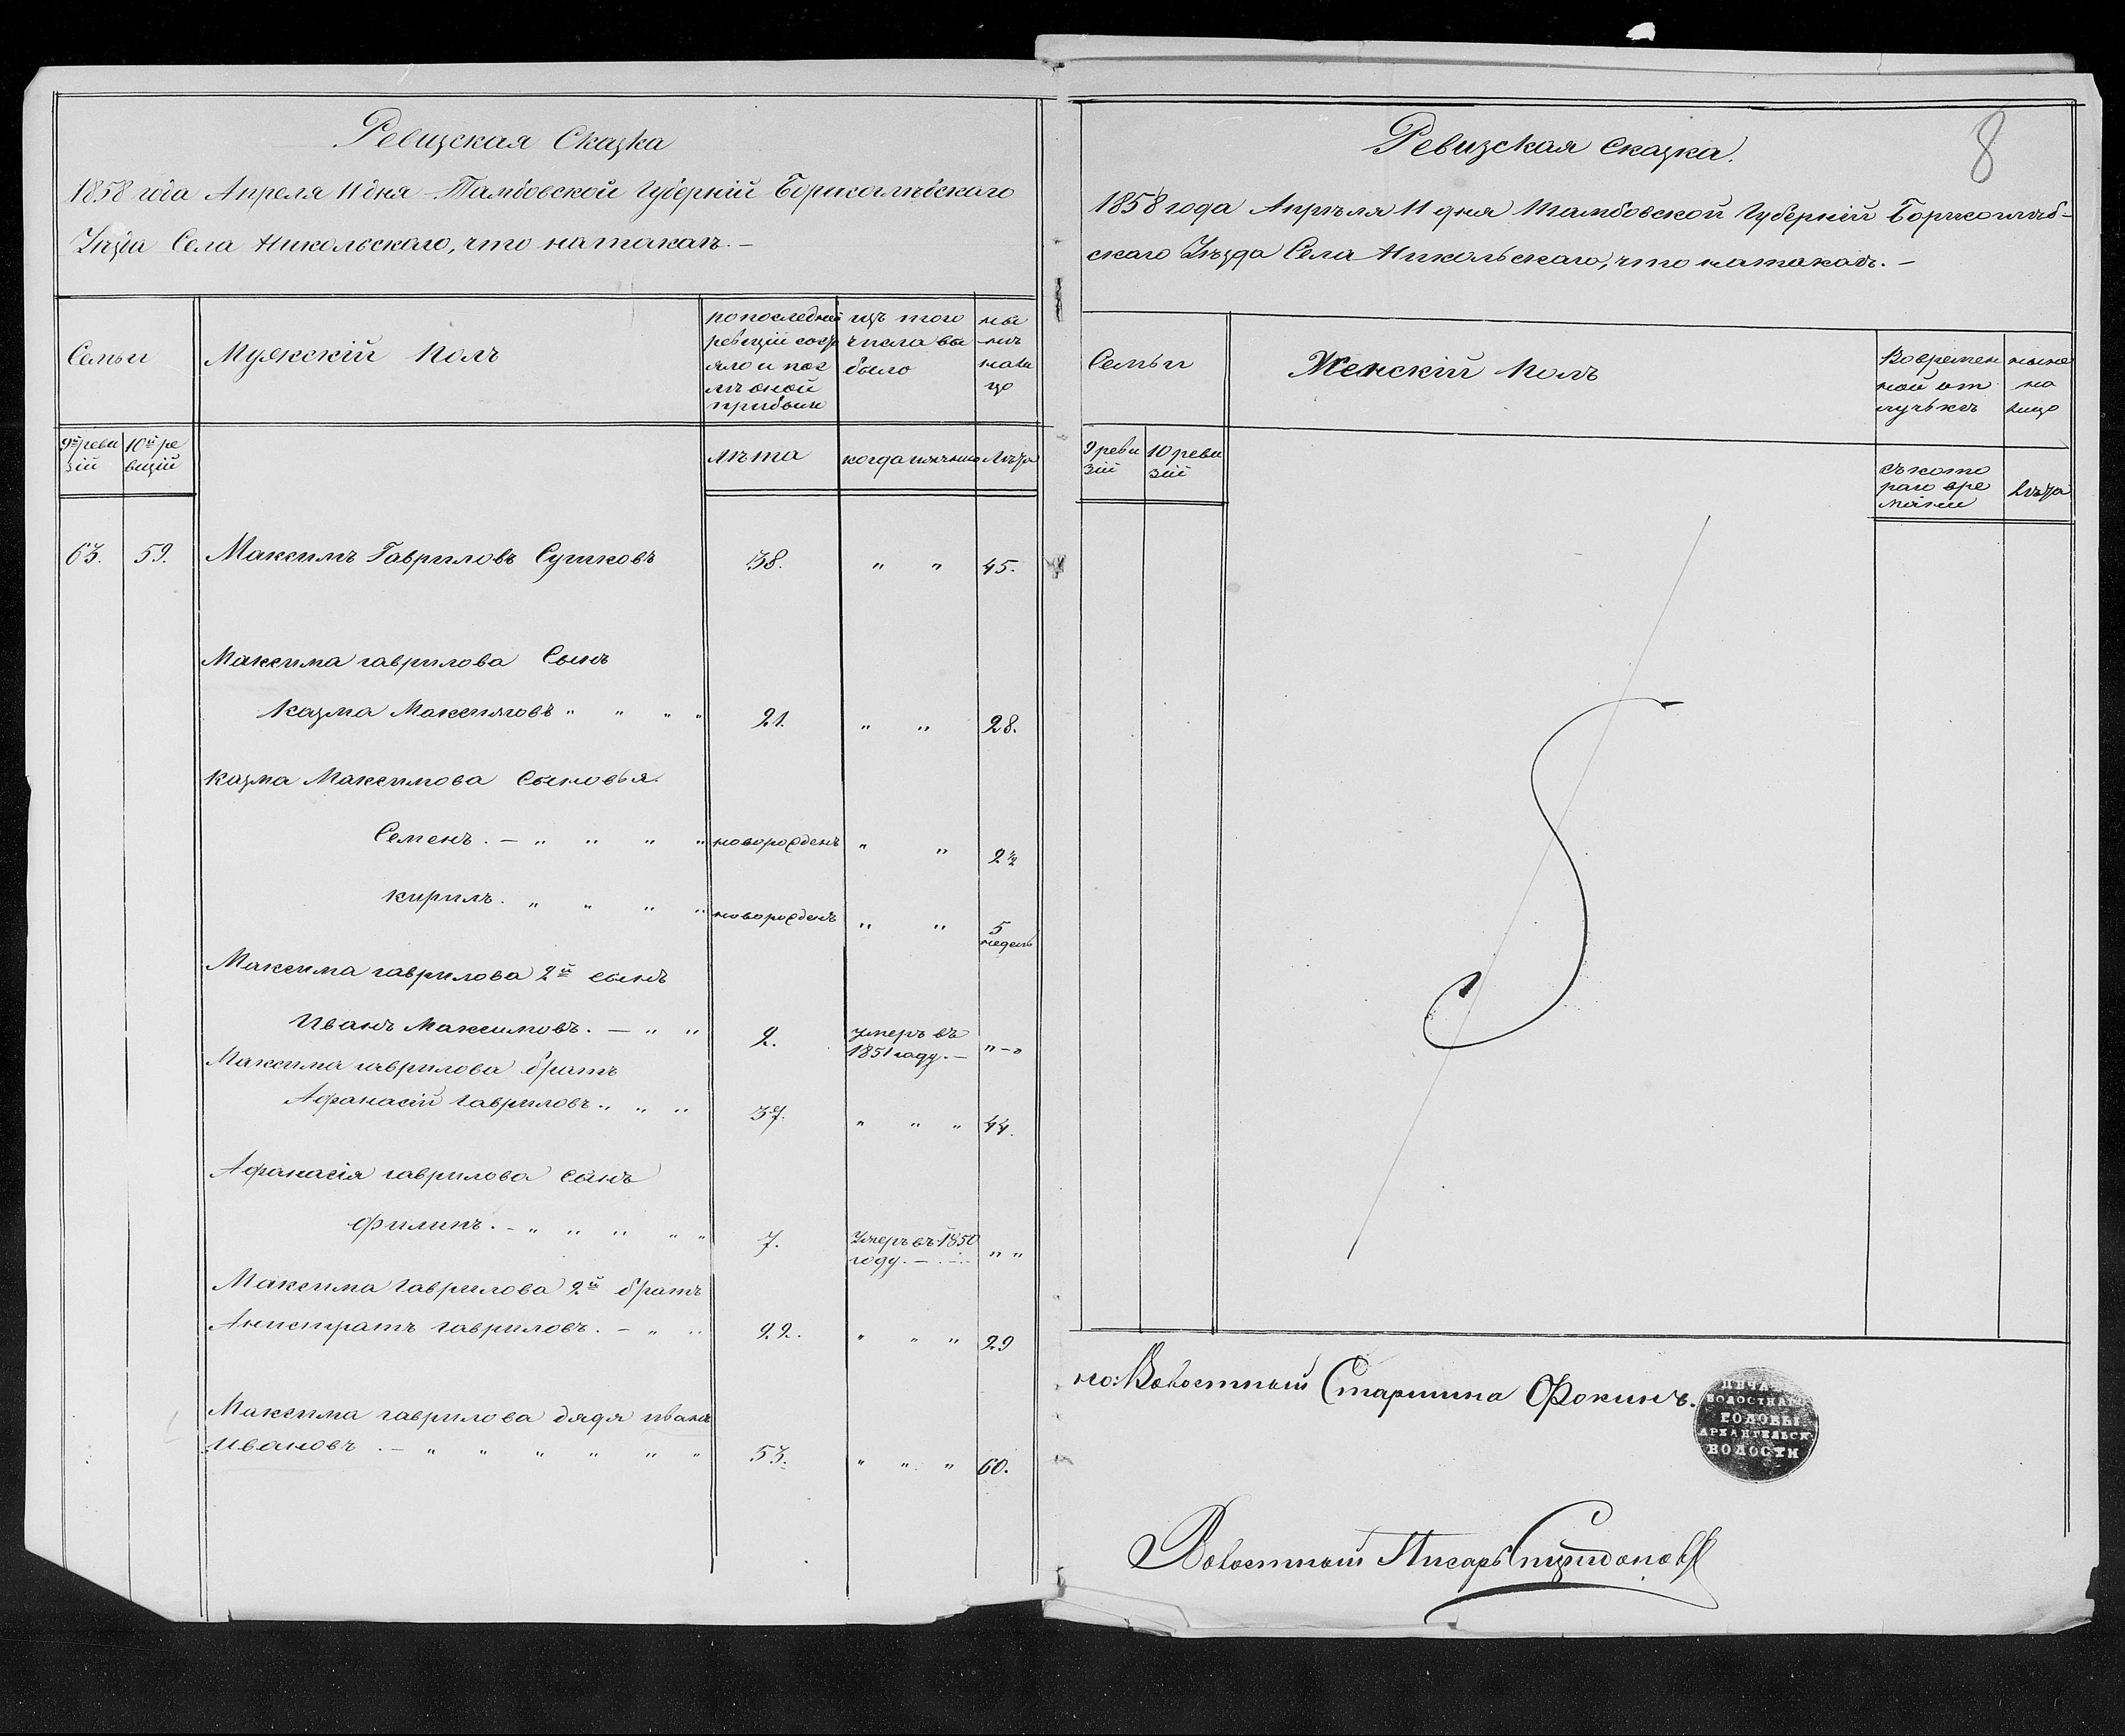 Ревизская Сказка
1858 года Апреля 11 дня Тамбовской Губерніи Борисоглебскаго
Уезда Села Никольскаго, что на
Семьи
Мужскій полъ
по последней
ревизіи состо
яло и пос
лѣ оной
прибыли
изъ того
числа вы
было
ны
нѣ
нали
цо
9й реви
зіи
10й ре
визіи
лѣта
когда именно
лѣта
63. 59. Максимъ Гавриловъ Сушковъ 38. " " 45.
Максима гаврилова Сынъ
Казма Максимовъ " " " " 21. " " 28.
Казма Максимова Сыновья.
Семенъ. – " " " " новорожденъ " " 2½
кирилъ. " " " " новорожденъ " " 5
недель
Максима гаврилова 2й сынъ
Иванъ Максимовъ. – " " 2. умеръ въ
1851 году. – " – "
Максима гаврилова братъ
Афанасій гавриловъ " " " 37. " " " 44.
Афанасія гаврилова сынъ
Филипъ. – " " " " " 7. Умеръ въ 1850
году. – " "
Максима Гаврилова 2й братъ
Анистратъ гавриловъ. – " " 22. " " " 29
Максима гаврилова дядя иванъ
Ивановъ. – " " " " " " 53. " " " 60.
Ревизская сказка.
8
1858 года Апрѣля 11 дня Тамбовской Губерніи Борисоглѣб-
скаго Уѣзда Села Никольскаго, что на
Семьи
Женскій полъ
Во времен
ной от
лучькѣ
ныне
на
лицо
9 реви
зіи
10 реви
зіи
съ кото
раго вре
мѣни
Лѣта
Волостный Старшина Фокинъ.
ПЕЧАТЬ
ВОЛОСТНАГО
ГОЛОВЫ
АРХАНГЕЛЬСК.
ВОЛОСТИ
Волостный Писарь